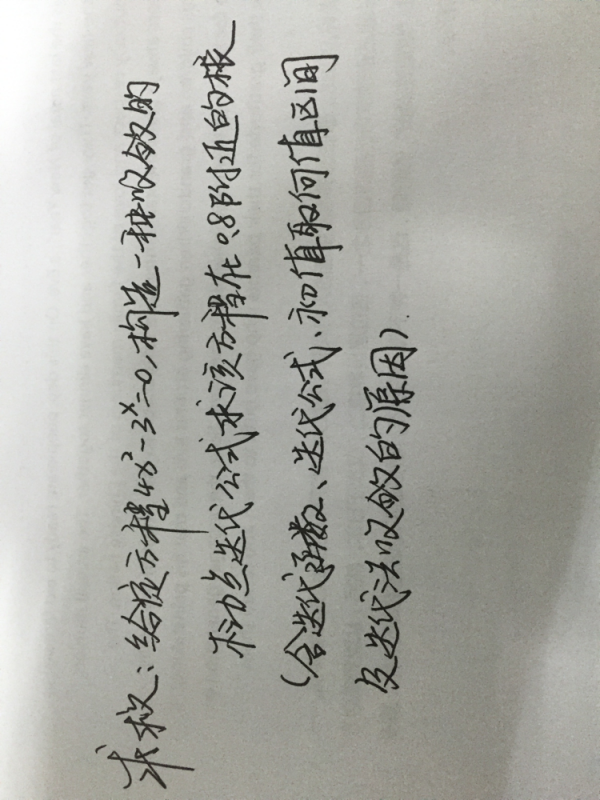 求救：给定方程4x²-3ˣ=0，构造一种收敛的
不动点迭代公式求该方程在0.8附近的根
(含迭代函数、迭代公式、初值取何值区间
及迭代法收敛的原因).